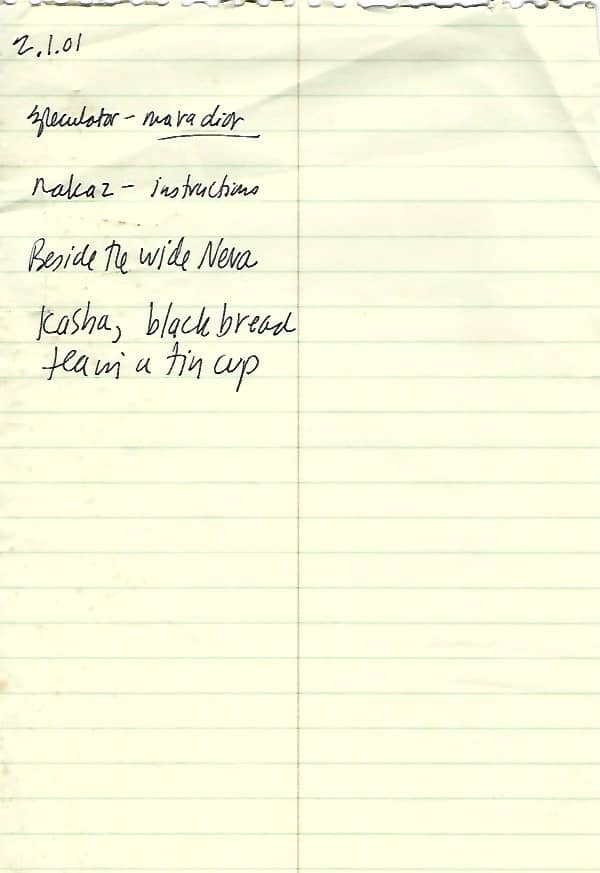 2.1.01
Speculator - maradior
nakaz - instructions
Beside the wide Neva
Kasha, black bread
tea in a tin cup